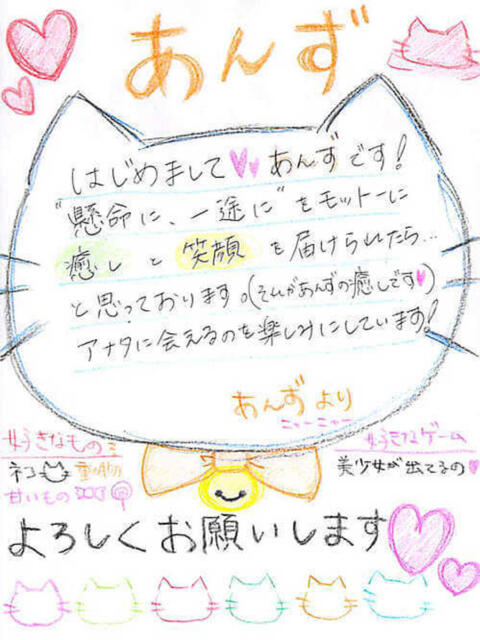 あんず
はじめまして♥♥あんずです!
"懸命に、一途に"をモットーに
癒しと笑顔を届けられたら…
と思っております。(それがあんずの癒しです♥)
アナタに会えるのを楽しみにしています!
あんずより
好きなもの
ネコ 動物
甘いもの
好きなゲーム
美少女が出てるの♥
よろしくお願いします